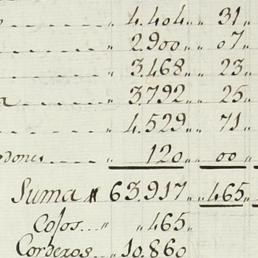 4.404 " 31
2.900 " 07
3.468 " 23
a 3.792 " 25
4.529 " 71
dones " 120 " 00
Suma " 63.917 " 465
Cojos " 465
Corderos 10.860